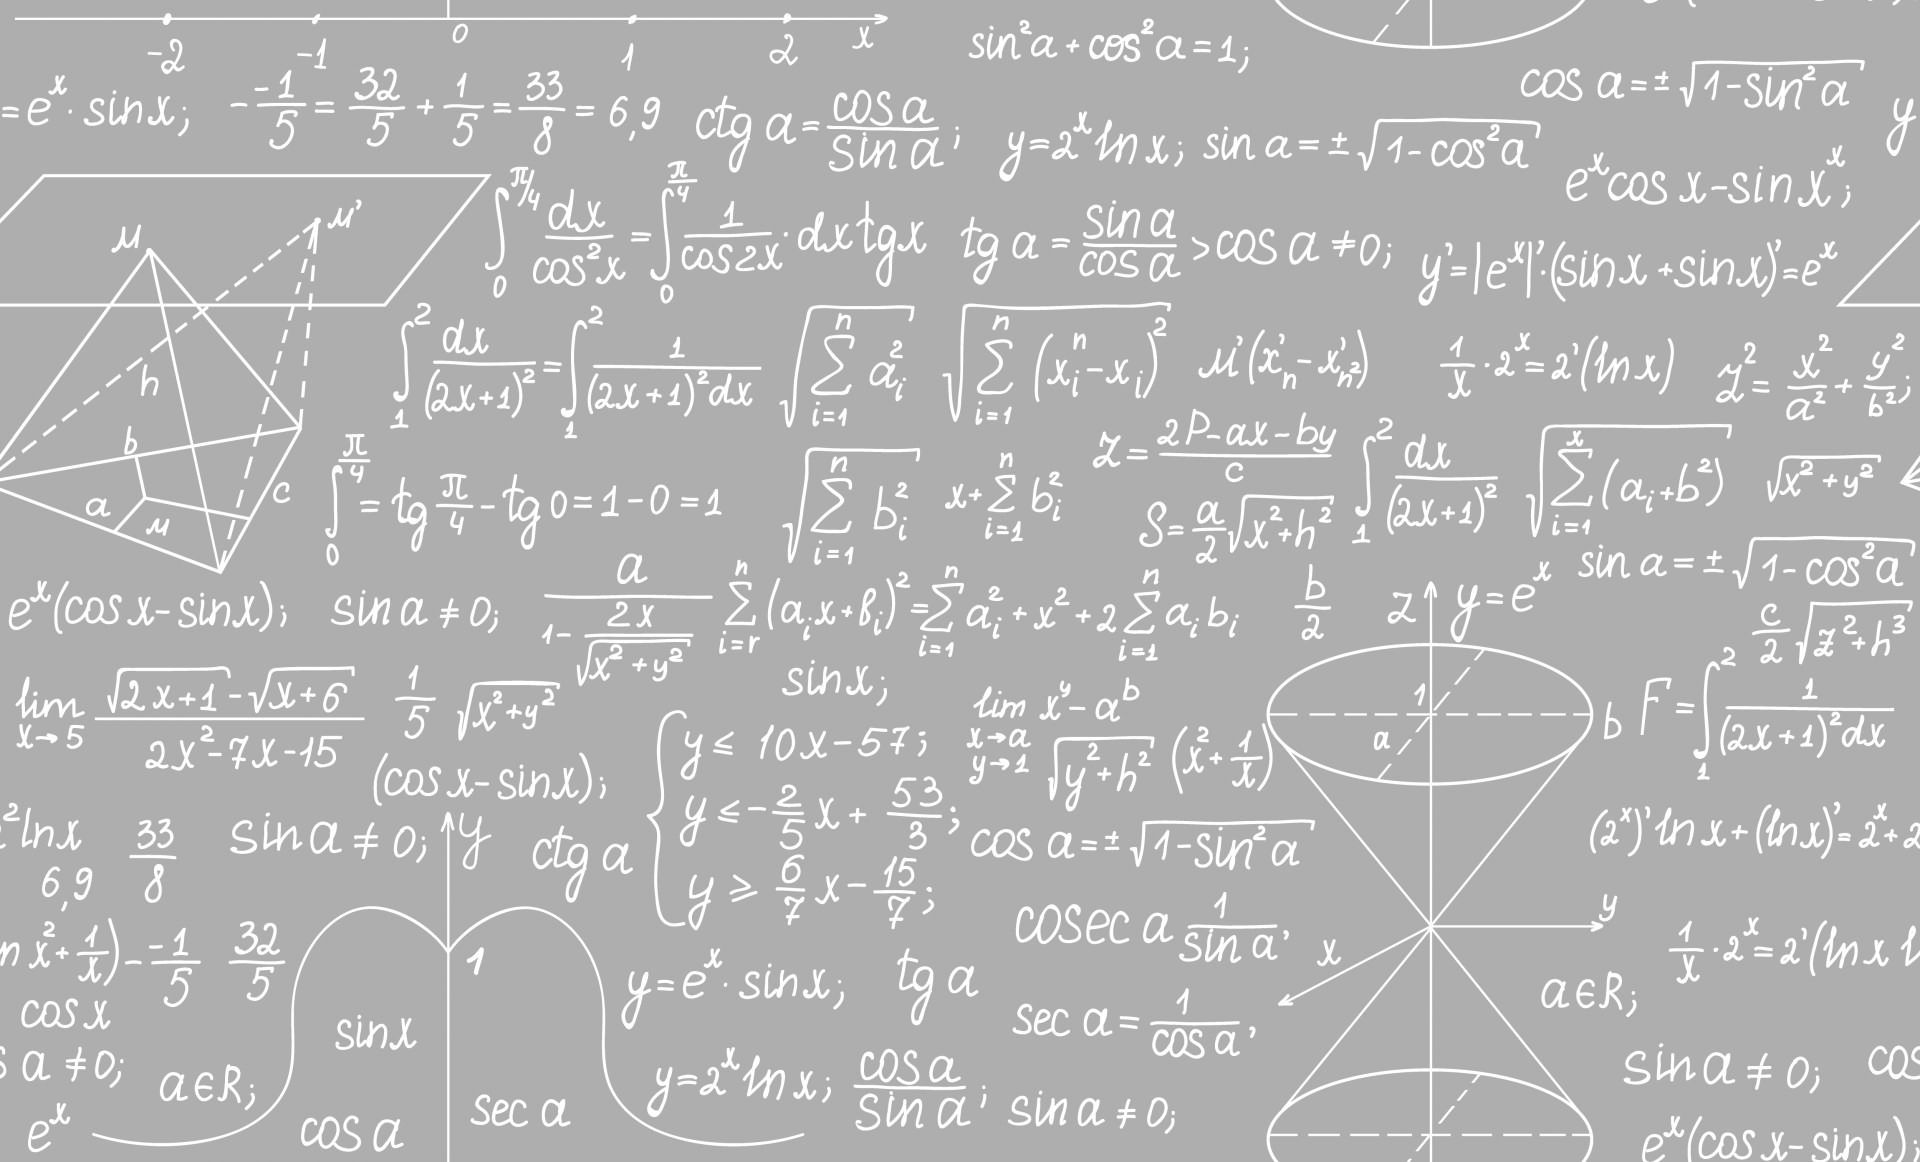 -2 -1 0 1 2 x
sin²a + cos²a = 1;
= eˣ · sin x; - -1/5 = 32/5 + 1/5 = 33/8 = 6,9
ctg a = cos a / sin a;
y = 2ˣ ln x; sin a = ± √(1 - cos²a)
cos a = ± √(1 - sin²a)
y
eˣ cos x - sin xˣ;
μ μ'
h
b
a μ c
∫₀^(π/4) dx / cos²x = ∫₀^(π/4) 1 / cos2x · dx tg x
tg a = sin a / cos a > cos a ≠ 0;
y' = |eˣ|' · (sin x + sin x)' = eˣ
∫₁² dx / (2x+1)² = ∫₁² 1 / (2x+1)² dx
√(∑ⁿᵢ₌₁ aᵢ²)
√(∑ⁿᵢ₌₁ (xᵢⁿ - xᵢ)²)
μ' (x'ₙ - x'ₙ²)
1/x · 2ˣ = 2' (ln x)
z² = x²/a² + y²/b²;
∫₀^(π/4) = tg π/4 - tg 0 = 1 - 0 = 1
√(∑ⁿᵢ₌₁ bᵢ²)
x + ∑ⁿᵢ₌₁ bᵢ²
z = (2P - ax - by) / c
S = a/2 √(x² + h²)
∫₁² dx / (2x+1)²
√(∑ˣᵢ₌₁ (aᵢ + b²))
√(x² + y²)
sin a = ± √(1 - cos²a)
eˣ (cos x - sin x); sin a ≠ 0;
a / (1 - 2x / √(x² + y²))
∑ⁿᵢ₌ᵣ (aᵢx + bᵢ)² = ∑ⁿᵢ₌₁ aᵢ² + x² + 2 ∑ⁿᵢ₌₁ aᵢ bᵢ
b/2
z y = eˣ
c/2 √(z² + h³)
lim x→5 (√(2x+1) - √(x+6)) / (2x² - 7x - 15)
1/5 √(x² + y²)
sin x;
lim x→a y→1 xʸ - aᵇ
√(y² + h²) (x² + 1/x)
1
a
b
F = ∫₁² 1 / (2x+1)² dx
(cos x - sin x);
{ y ≤ 10x - 57;
y ≤ - 2/5 x + 53/3;
y ≥ 6/7 x - 15/7;
²ln x 33/8 sin a ≠ 0; y ctg a
6,9
cos a = ± √(1 - sin²a)
(2ˣ)' ln x + (ln x)' = 2ˣ + 2
cosec a 1 / sin a,
x y
n x² + 1/x) - -1/5 32/5
1
y = eˣ · sin x; tg a
1/x · 2ˣ = 2' (ln x
cos x
sin x
sec a = 1 / cos a,
a ∈ R;
s a ≠ 0; a ∈ R;
y = 2ˣ ln x; cos a / sin a; sin a ≠ 0;
sin a ≠ 0; cos
eˣ cos a sec a
eˣ (cos x - sin x);